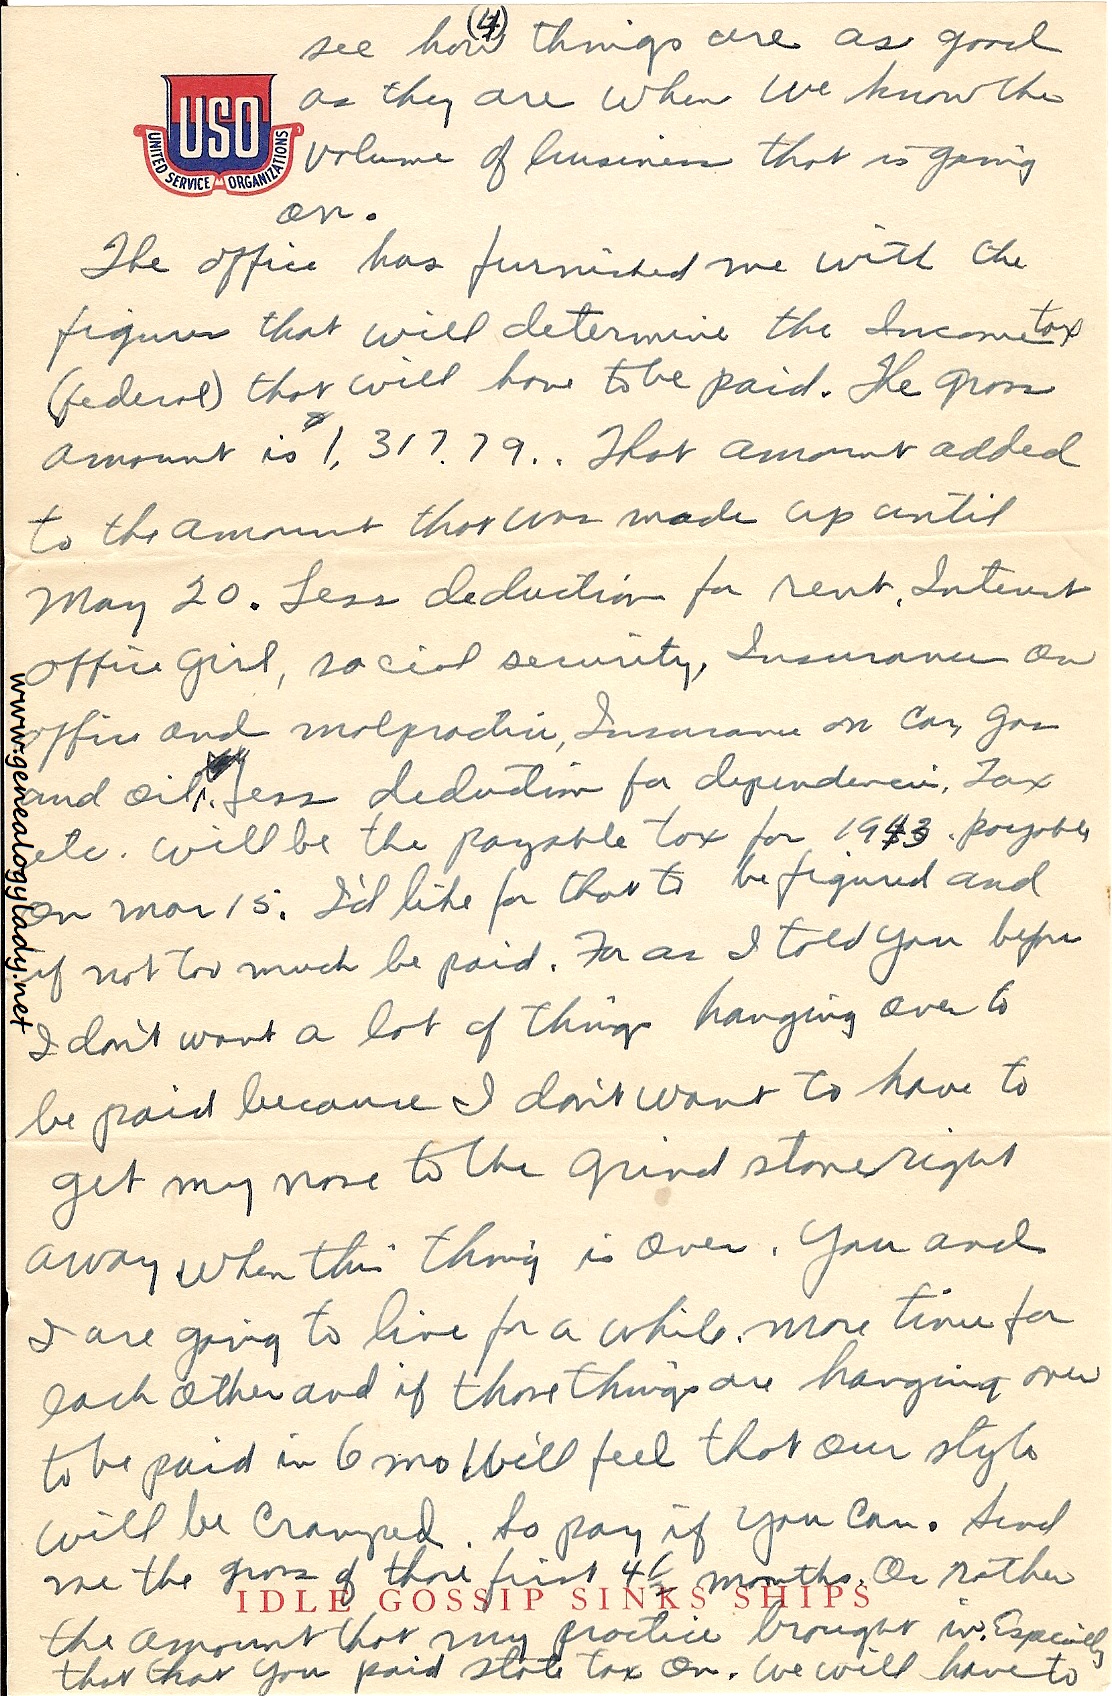 (4)
see how things are as good
as they are when we know the
volume of business that is going
on.
USO
UNITED SERVICE ORGANIZATIONS
The office has furnished me with the
figures that will determine the Income tax
(federal) that will have to be paid. The gross
amount is $1,317.79.. That amount added
to the amount that was made up until
May 20. Less deduction for rent, Interest
office girl, social security, Insurance on
office and malpractice, Insurance on car, gas
and oil. Less deduction for dependencies, Tax
etc. will be the payable tax for 1943. payable
on Mar 15. I'd like for that to be figured and
if not too much be paid. For as I told you before
I don't want a lot of things hanging over to
be paid because I don't want to have to
get my nose to the grind stone right
away when this thing is over. You and
I are going to live for a while. more time for
each other and if those things are hanging over
to be paid in 6 mo We'll feel that our style
will be cramped. So pay if you can. Send
me the gross of those first 4 ½ months. Or rather
IDLE GOSSIP SINKS SHIPS
the amount that my practice brought in. Especially
that that you paid state tax on. We will have to
www.genealogylady.net